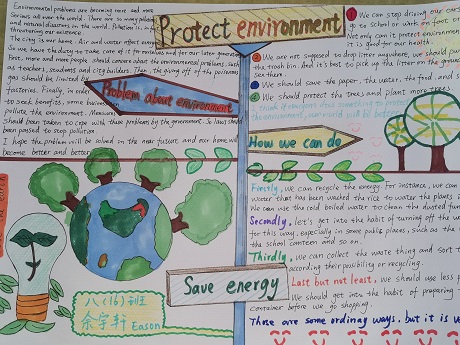 Environmental problems are becoming more and more
Serious all over the world.
and natural disasters in the world.
threatening our existence.
The thing is over home. Air and water effect every
So we have the duty to take care of it for ourselves and for our later generation
First, more and more people should concern about the environmental problems, such
as teachers, students and city builders. Then, the giving off of the poisonous
gas should be limited
factories. Finally, in order
to seek benefits, some business
pollute the environment. Measures
should been taken to cope with these problems by the government. So laws should
been passed to stop pollution.
I hope the problem will be solved in the near future and our home will
become better and better.
Protect environment
Problem about environment
① We can stop driving our car
go to school or walk on foot
Not only can it protect environment
It is good for health.
② We are not supposed to drop litter anywhere, we should put
in a trash bin. And it is best to pick up the litter on the ground
see them.
③ We should save the paper, the water, the food, and
④ We should protect the trees and plant more trees
the environment, our world will be better
How we can do
Firstly, we can recycle the energy. for instance, we can
water that has been washed the rice to water the plants
We can use the cold boiled water to clean the dusted
Secondly, let's get into the habit of turning off the
for this way, especially in some public places, such as the
the school canteen and so on.
Thirdly, we can collect the waste thing and sort
according their possibility or recycling.
Last but not least, we should use less
We should get into the habit of preparing
container before we go shopping.
These are some ordinary ways, but it is
Save energy
earth
八(16)班
余宇轩 Eason